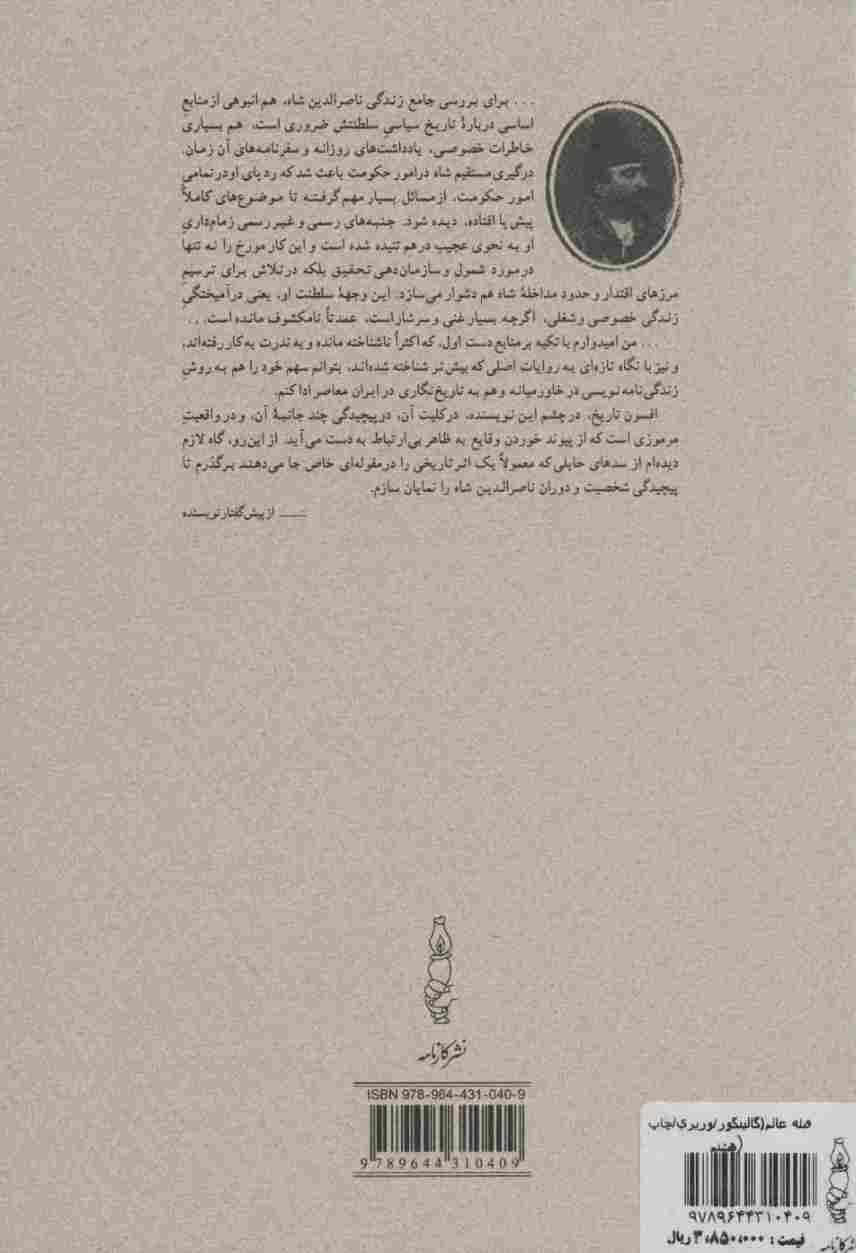 ... برای بررسی جامع زندگی ناصرالدین شاه، هم انبوهی از منابع
اساسی دربارهٔ تاریخ سیاسیِ سلطنتش ضروری است، هم بسیاری
خاطرات خصوصی، یادداشت‌های روزانه و سفرنامه‌های آن زمان.
درگیری مستقیم شاه در امور حکومت باعث شد که رد پای او در تمامی
امور حکومت، از مسائل بسیار مهم گرفته تا موضوع‌های کاملاً
پیش پا افتاده، دیده شود. جنبه‌های رسمی و غیر رسمی زمامداریِ
او به نحوی عجیب درهم تنیده شده است و این کار مورخ را نه تنها
در مورد شمول و سازمان‌دهی تحقیق بلکه در تلاش برای ترسیمِ
مرزهای اقتدار و حدود مداخلهٔ شاه هم دشوار می‌سازد. این وجههٔ سلطنت او، یعنی درآمیختگیِ
زندگی خصوصی و شغلی، اگرچه بسیار غنی و سرشار است، عمدتاً نامکشوف مانده است...
... من امیدوارم با تکیه بر منابع دست اول، که اکثراً ناشناخته مانده و به ندرت به کار رفته‌اند،
و نیز با نگاه تازه‌ای به روایات اصلی که بیش‌تر شناخته شده‌اند، بتوانم سهم خود را هم به روش
زندگی‌نامه‌نویسی در خاورمیانه و هم به تاریخ‌نگاری در ایران معاصر ادا کنم.
افسون تاریخ، در چشم این نویسنده، در کلیت آن، در پیچیدگی چند جانبهٔ آن، و در واقعیتِ
مرموزی است که از پیوند خوردن وقایع به ظاهر بی‌ارتباط به دست می‌آید. از این‌رو، گاه لازم
دیده‌ام از سدهای حایلی که معمولاً یک اثر تاریخی را در مقوله‌ای خاص جا می‌دهند برگذرم تا
پیچیدگی شخصیت و دوران ناصرالدین شاه را نمایان سازم.
ـــــ از پیش‌گفتار نویسنده
نشر کارنامه
ISBN 978-964-431-040-9
9 789644 310409
قبله عالم(گالینگور/وزیری/چاپ
هشتم)
۹۷۸۹۶۴۴۳۱۰۴۰۹
قیمت : ۳،۸۵۰،۰۰۰ ریال